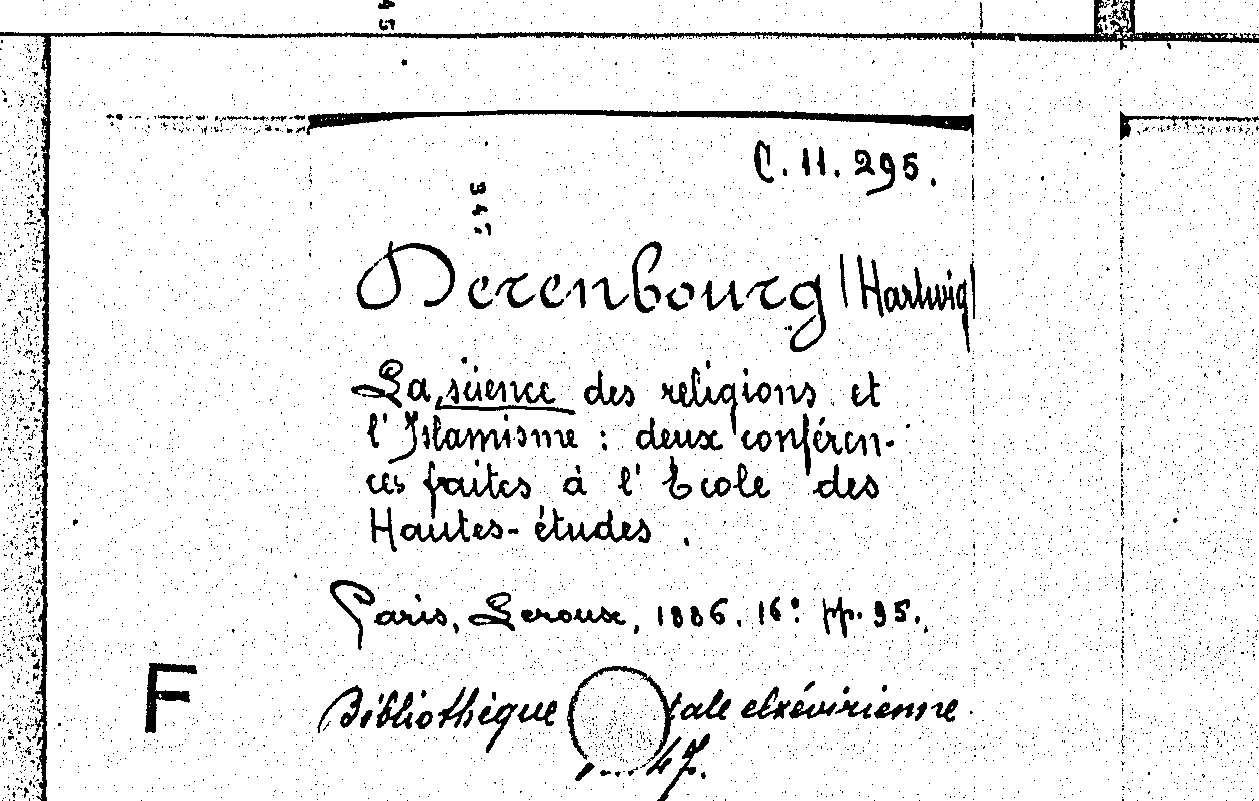 45
C. 11. 295.
345
Derenbourg (Hartwig)
La science des religions et
l'Islamisme : deux conféren-
ces faites à l'Ecole des
Hautes-études.
Paris, Leroux, 1886. 16° pp. 95.
F
Bibliothèque tale elzévirienne
47.